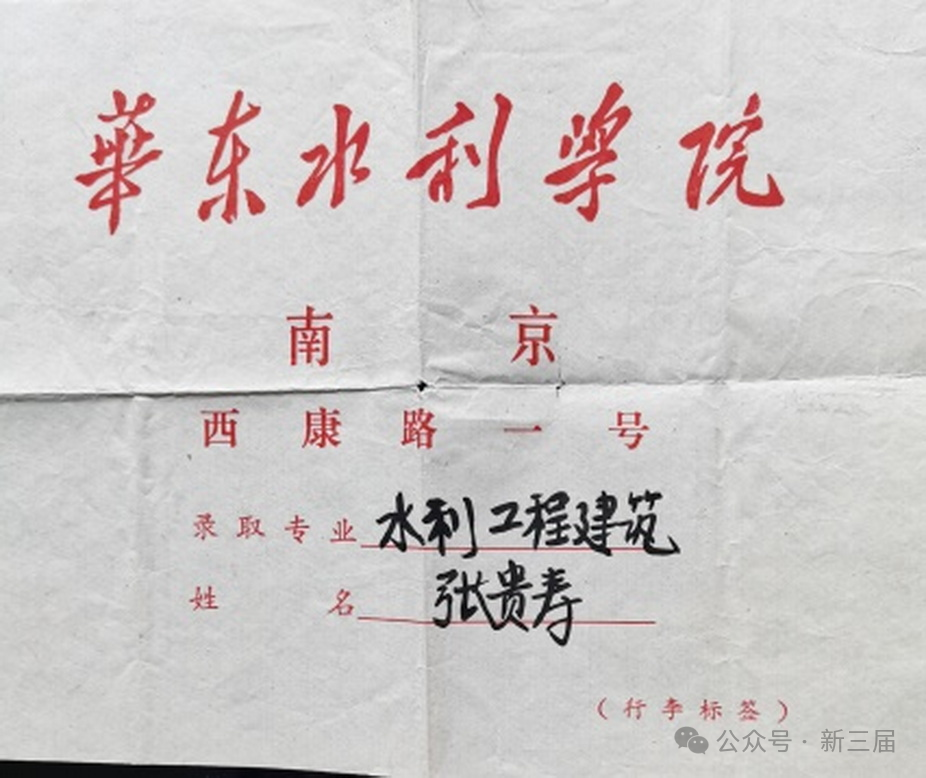 華东水利学院
南京
西康路一号
录取专业 水利工程建筑
姓名 张贵寿
（行李标签）
公众号·新三届